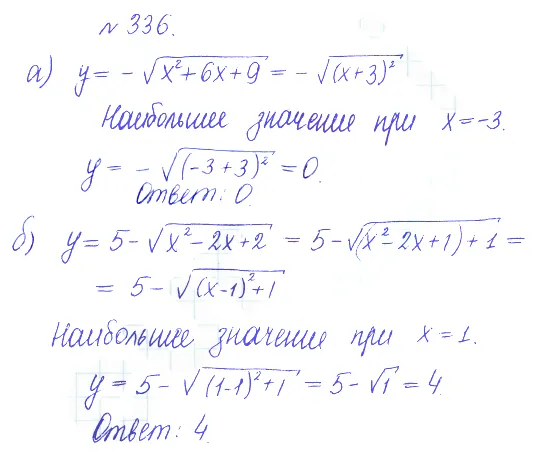 № 336.
а) y = - √(x²+6x+9) = - √((x+3)²)
Наибольшее значение при x=-3.
y = - √((-3+3)²) = 0.
Ответ: 0.
б) y = 5-√(x²-2x+2) = 5-√((x²-2x+1)+1) =
= 5-√((x-1)²+1)
Наибольшее значение при x=1.
y = 5-√((1-1)²+1) = 5-√1 = 4
Ответ: 4